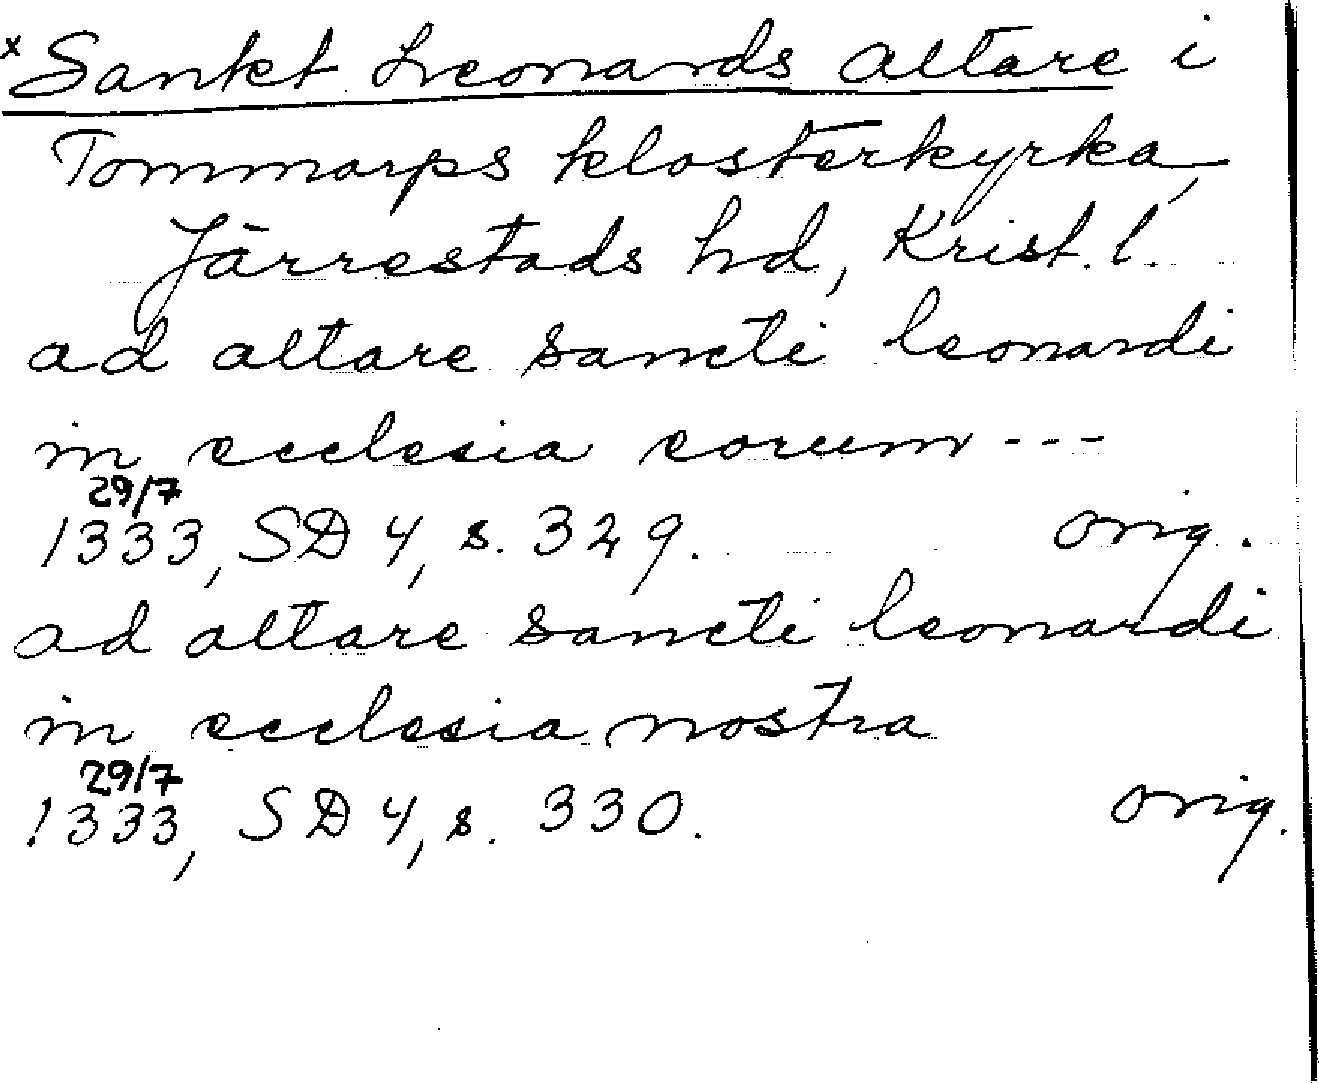 x Sankt Leonards altare i
Tommarps klosterkyrka,
Järrestads hd, Krist. l.
ad altare sancti leonardi
in ecclesia eorum ---
29/7
1333, SD 4, s. 329. orig.
ad altare sancti leonardi
in ecclesia nostra
29/7
1333, SD 4, s. 330. orig.